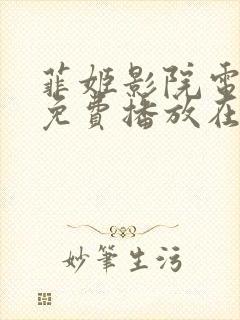 菲姬影院电
免费播放在
妙筆生污